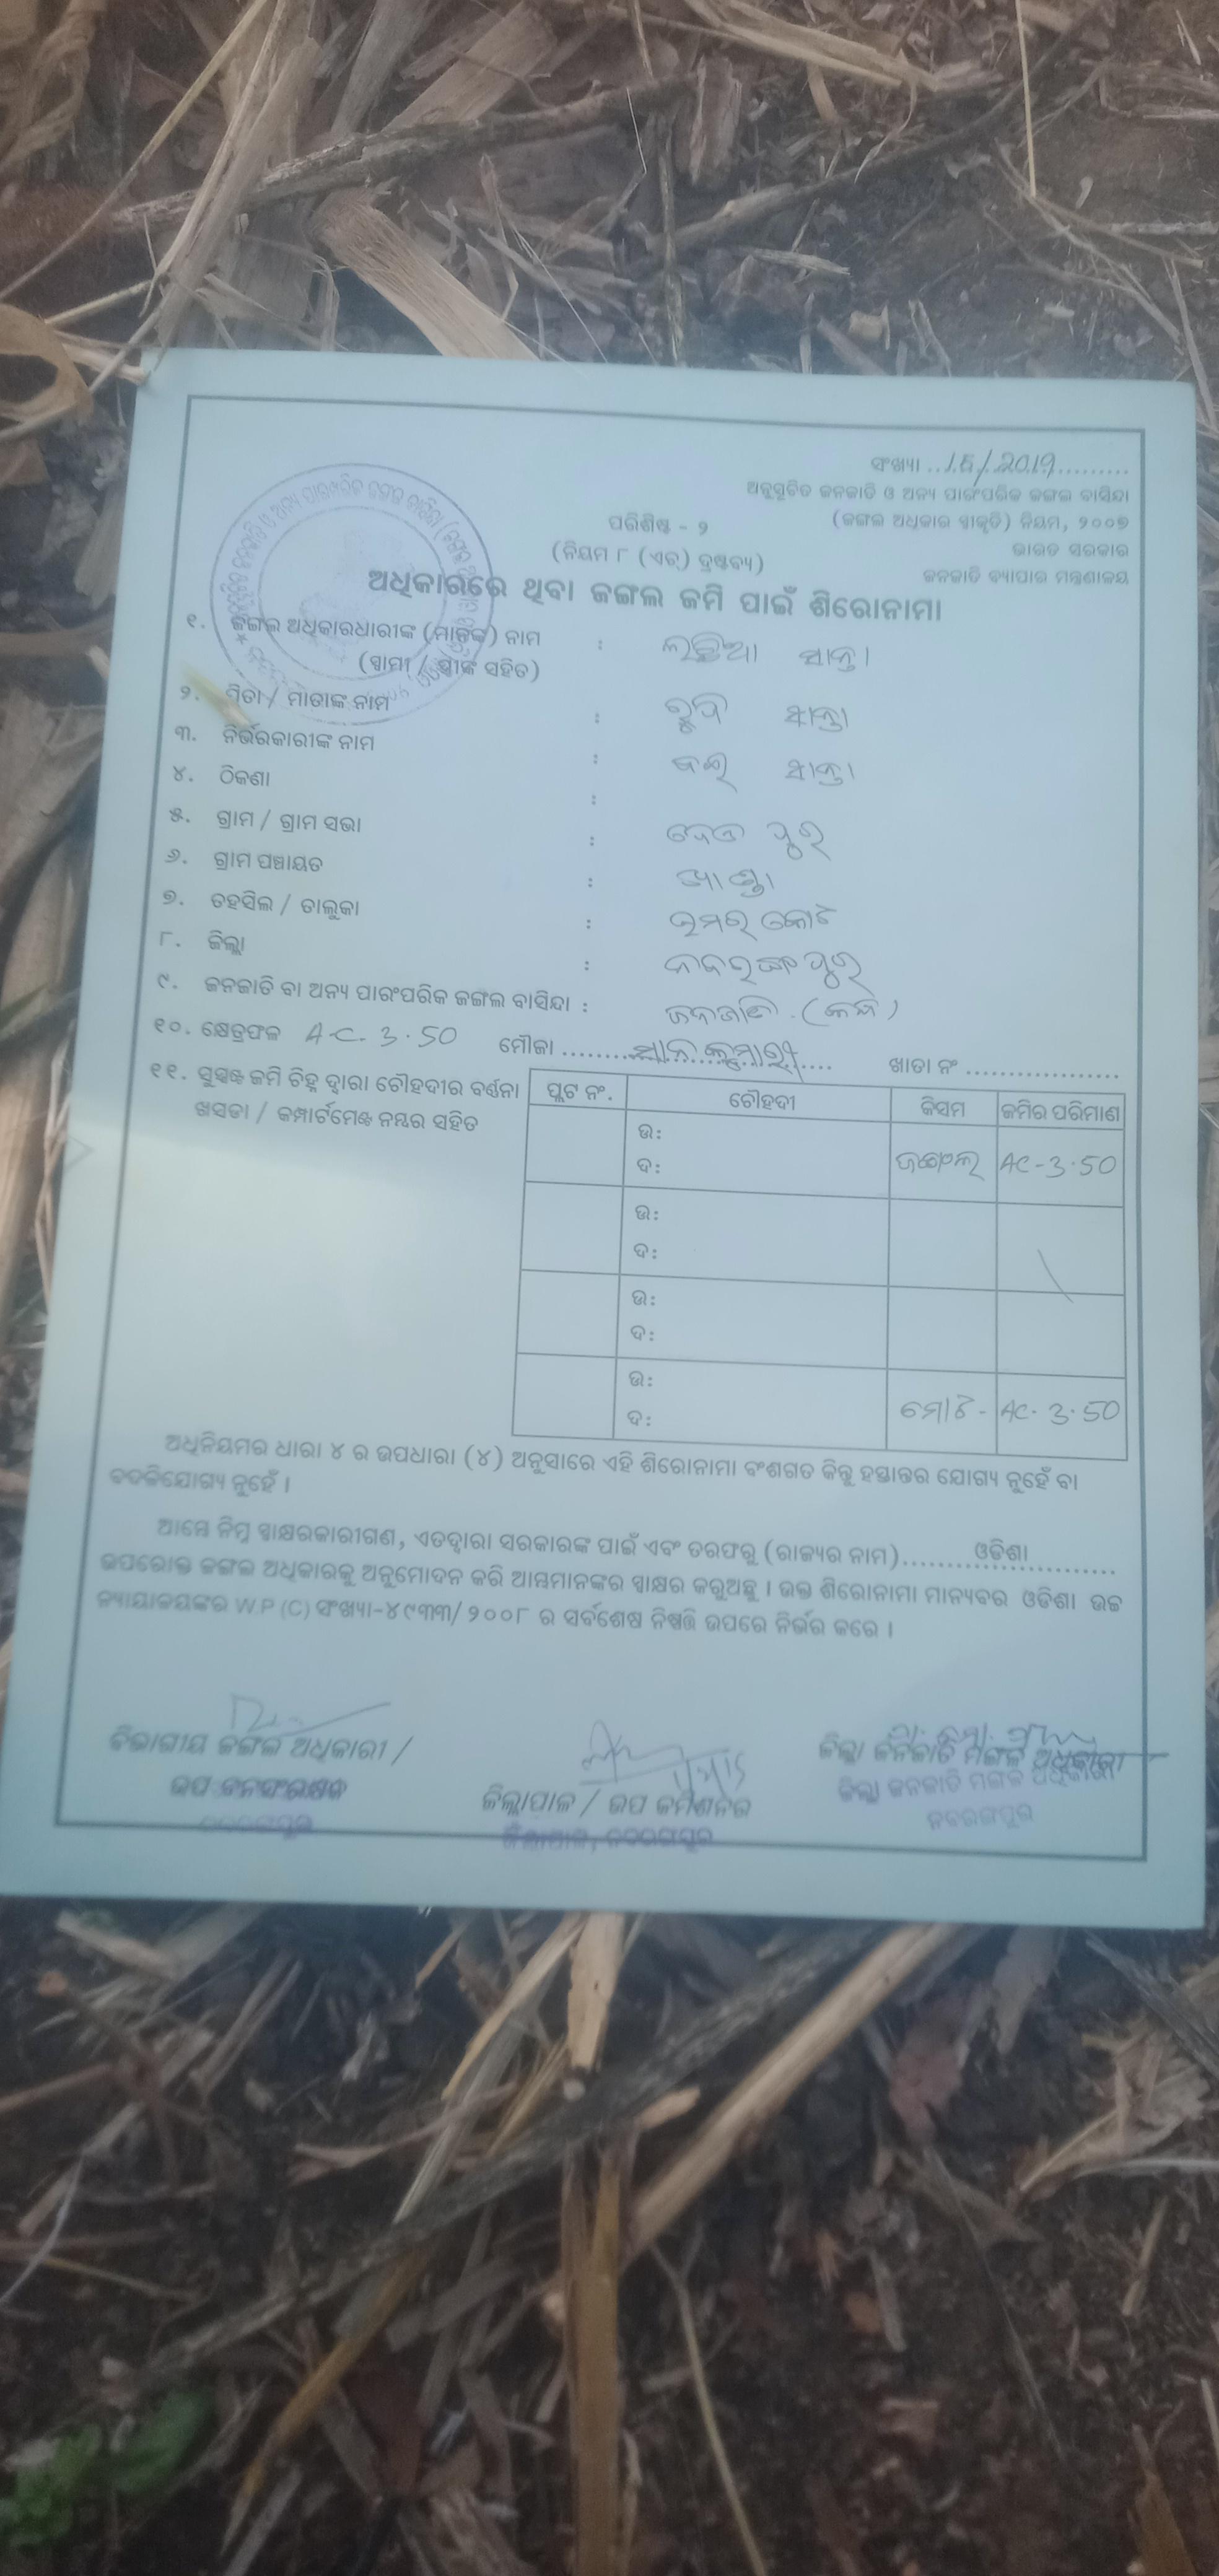 ସଂଖ୍ୟା ..15/2019..........
ଅନୁସୂଚିତ ଜନଜାତି ଓ ଅନ୍ୟ ପାରଂପରିକ ଜଙ୍ଗଲ ବାସିନ୍ଦା
(ଜଙ୍ଗଲ ଅଧିକାର ସ୍ୱୀକୃତି) ନିୟମ, ୨୦୦୭
ଭାରତ ସରକାର
ଜନଜାତି ବ୍ୟାପାର ମନ୍ତ୍ରଣାଳୟ
ପରିଶିଷ୍ଟ - ୨
(ନିୟମ ୮ (ଏଚ୍) ଦ୍ରଷ୍ଟବ୍ୟ)
ଅଧିକାରରେ ଥିବା ଜଙ୍ଗଲ ଜମି ପାଇଁ ଶିରୋନାମା
୧. ଜଙ୍ଗଲ ଅଧିକାରଧାରୀଙ୍କ (ମାନଙ୍କ) ନାମ :
(ସ୍ୱାମୀ / ସ୍ତ୍ରୀଙ୍କ ସହିତ)
୨. ପିତା / ମାତାଙ୍କ ନାମ :
୩. ନିର୍ଭରକାରୀଙ୍କ ନାମ :
୪. ଠିକଣା :
୫. ଗ୍ରାମ / ଗ୍ରାମ ସଭା :
୬. ଗ୍ରାମ ପଞ୍ଚାୟତ :
୭. ତହସିଲ / ତାଲୁକା : ଉମରକୋଟ
୮. ଜିଲ୍ଲା : ନବରଙ୍ଗପୁର
୯. ଜନଜାତି ବା ଅନ୍ୟ ପାରଂପରିକ ଜଙ୍ଗଲ ବାସିନ୍ଦା : ଜନଜାତି
୧୦. କ୍ଷେତ୍ରଫଳ AC. 3.50 ମୌଜା ଖାତା ନଂ ..................
୧୧. ସୁସ୍ପଷ୍ଟ ଜମି ଚିହ୍ନ ଦ୍ୱାରା ଚୌହଦୀର ବର୍ଣ୍ଣନା
ଖସଡା / କମ୍ପାର୍ଟମେଣ୍ଟ ନମ୍ବର ସହିତ
ପ୍ଲଟ ନଂ. ଚୌହଦୀ କିସମ ଜମିର ପରିମାଣ
ଉ:
ଦ: ଜଙ୍ଗଲ AC-3.50
ଉ:
ଦ:
ଉ:
ଦ:
ଉ:
ଦ: ମୋଟ- AC. 3.50
ଅଧିନିୟମର ଧାରା ୪ ର ଉପଧାରା (୪) ଅନୁସାରେ ଏହି ଶିରୋନାମା ବଂଶଗତ କିନ୍ତୁ ହସ୍ତାନ୍ତର ଯୋଗ୍ୟ ନୁହେଁ ବା
ବଦଳିଯୋଗ୍ୟ ନୁହେଁ ।
ଆମ୍ଭେ ନିମ୍ନ ସ୍ୱାକ୍ଷରକାରୀଗଣ, ଏତଦ୍ୱାରା ସରକାରଙ୍କ ପାଇଁ ଏବଂ ତରଫରୁ (ରାଜ୍ୟର ନାମ)..........ଓଡିଶା............
ଉପରୋକ୍ତ ଜଙ୍ଗଲ ଅଧିକାରକୁ ଅନୁମୋଦନ କରି ଆମ୍ଭମାନଙ୍କର ସ୍ୱାକ୍ଷର କରୁଅଛୁ । ଉକ୍ତ ଶିରୋନାମା ମାନ୍ୟବର ଓଡିଶା ଉଚ୍ଚ
ନ୍ୟାୟାଳୟଙ୍କର W.P (C) ସଂଖ୍ୟା-୪୯୩୩/୨୦୦୮ ର ସର୍ବଶେଷ ନିଷ୍ପତ୍ତି ଉପରେ ନିର୍ଭର କରେ ।
ବିଭାଗୀୟ ଜଙ୍ଗଲ ଅଧିକାରୀ /
ଉପ ବନସଂରକ୍ଷକ
ଜିଲ୍ଲାପାଳ / ଉପ କମିଶନର
ଜିଲ୍ଲାପାଳ, ନବରଙ୍ଗପୁର
ଜିଲ୍ଲା ଜନଜାତି ମଙ୍ଗଳ ଅଧିକାରୀ
ଜିଲ୍ଲା ଜନଜାତି ମଙ୍ଗଳ ଅଧିକାରୀ
ନବରଙ୍ଗପୁର